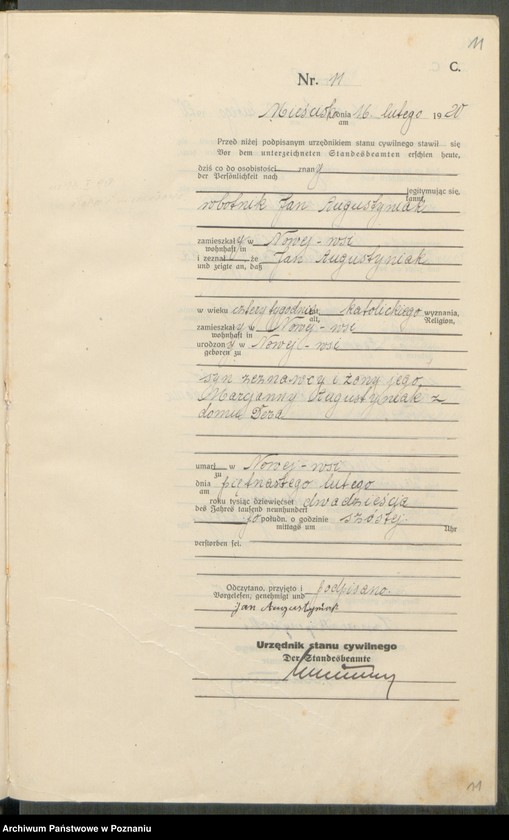 11
C.
Nr. 11
Mieścisko dnia 16. lutego 1920
am
Przed niżej podpisanym urzędnikiem stanu cywilnego stawił się
Vor dem unterzeichneten Standesbeamten erschien heute,
dziś co do osobistości znany
der Persönlichkeit nach
legitymując się,
kannt,
robotnik Jan Augustyniak
zamieszkały w Nowej-wsi
wohnhaft in
i zeznał że Jan Augustyniak
und zeigte an, daß
w wieku cztery tygodnie katolickiego wyznania,
alt, Religion,
zamieszkały w Nowej-wsi
wohnhaft in
urodzony w Nowej-wsi
geboren zu
syn zeznawcy i żony jego,
Maryanny Augustyniak z
domu Dera
umarł w Nowej-wsi
zu
dnia piętnastego lutego
am
roku tysiąc dziewięćset dwadzieścia
des Jahres tausend neunhundert
po połudn. o godzinie szóstej
mittags um Uhr
verstorben sei.
Odczytano, przyjęto i podpisano.
Vorgelesen, genehmigt und
Jan Augustyniak
Urzędnik stanu cywilnego
Der Standesbeamte
11
Archiwum Państwowe w Poznaniu